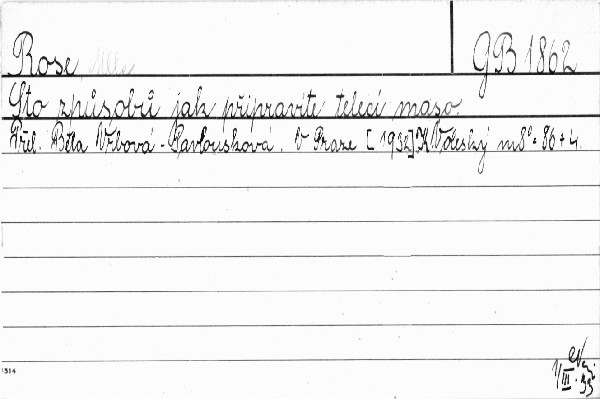 Rose GB 1862
Sto způsobů jak připraviti telecí maso.
Přel. Běla Vrbová-Pavlousková. V Praze [1932] K. Voleský m8° 86+4.
1/III.33
1514